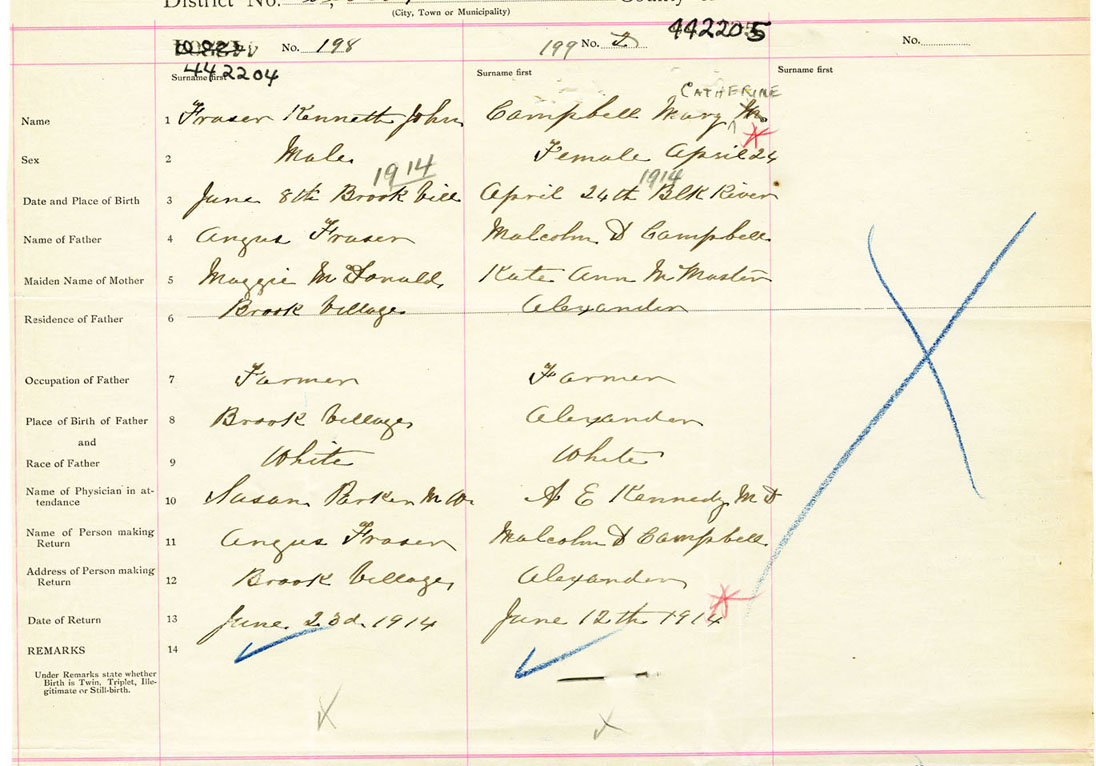 District No.
(City, Town or Municipality)
No. 198
442204
199 No. 2
442205
No.
Surname first
Surname first
Surname first
CATHERINE
Name 1 Fraser Kenneth John Campbell Mary
Sex 2 Male Female April 24
1914 1914
Date and Place of Birth 3 June 8th Brook Vill April 24th Blk River
Name of Father 4 Angus Fraser Malcolm D Campbell
Maiden Name of Mother 5 Maggie McDonald Kate Ann McMaster
Residence of Father 6 Brook Village Alexander
Occupation of Father 7 Farmer Farmer
Place of Birth of Father 8 Brook Village Alexander
and
Race of Father 9 White White
Name of Physician in at-
tendance 10 Susan Parker M W. A E Kennedy M D
Name of Person making
Return 11 Angus Fraser Malcolm D Campbell
Address of Person making
Return 12 Brook Village Alexander
Date of Return 13 June 23d 1914 June 12th 1914
REMARKS 14
Under Remarks state whether
Birth is Twin, Triplet, Ille-
gitimate or Still-birth.